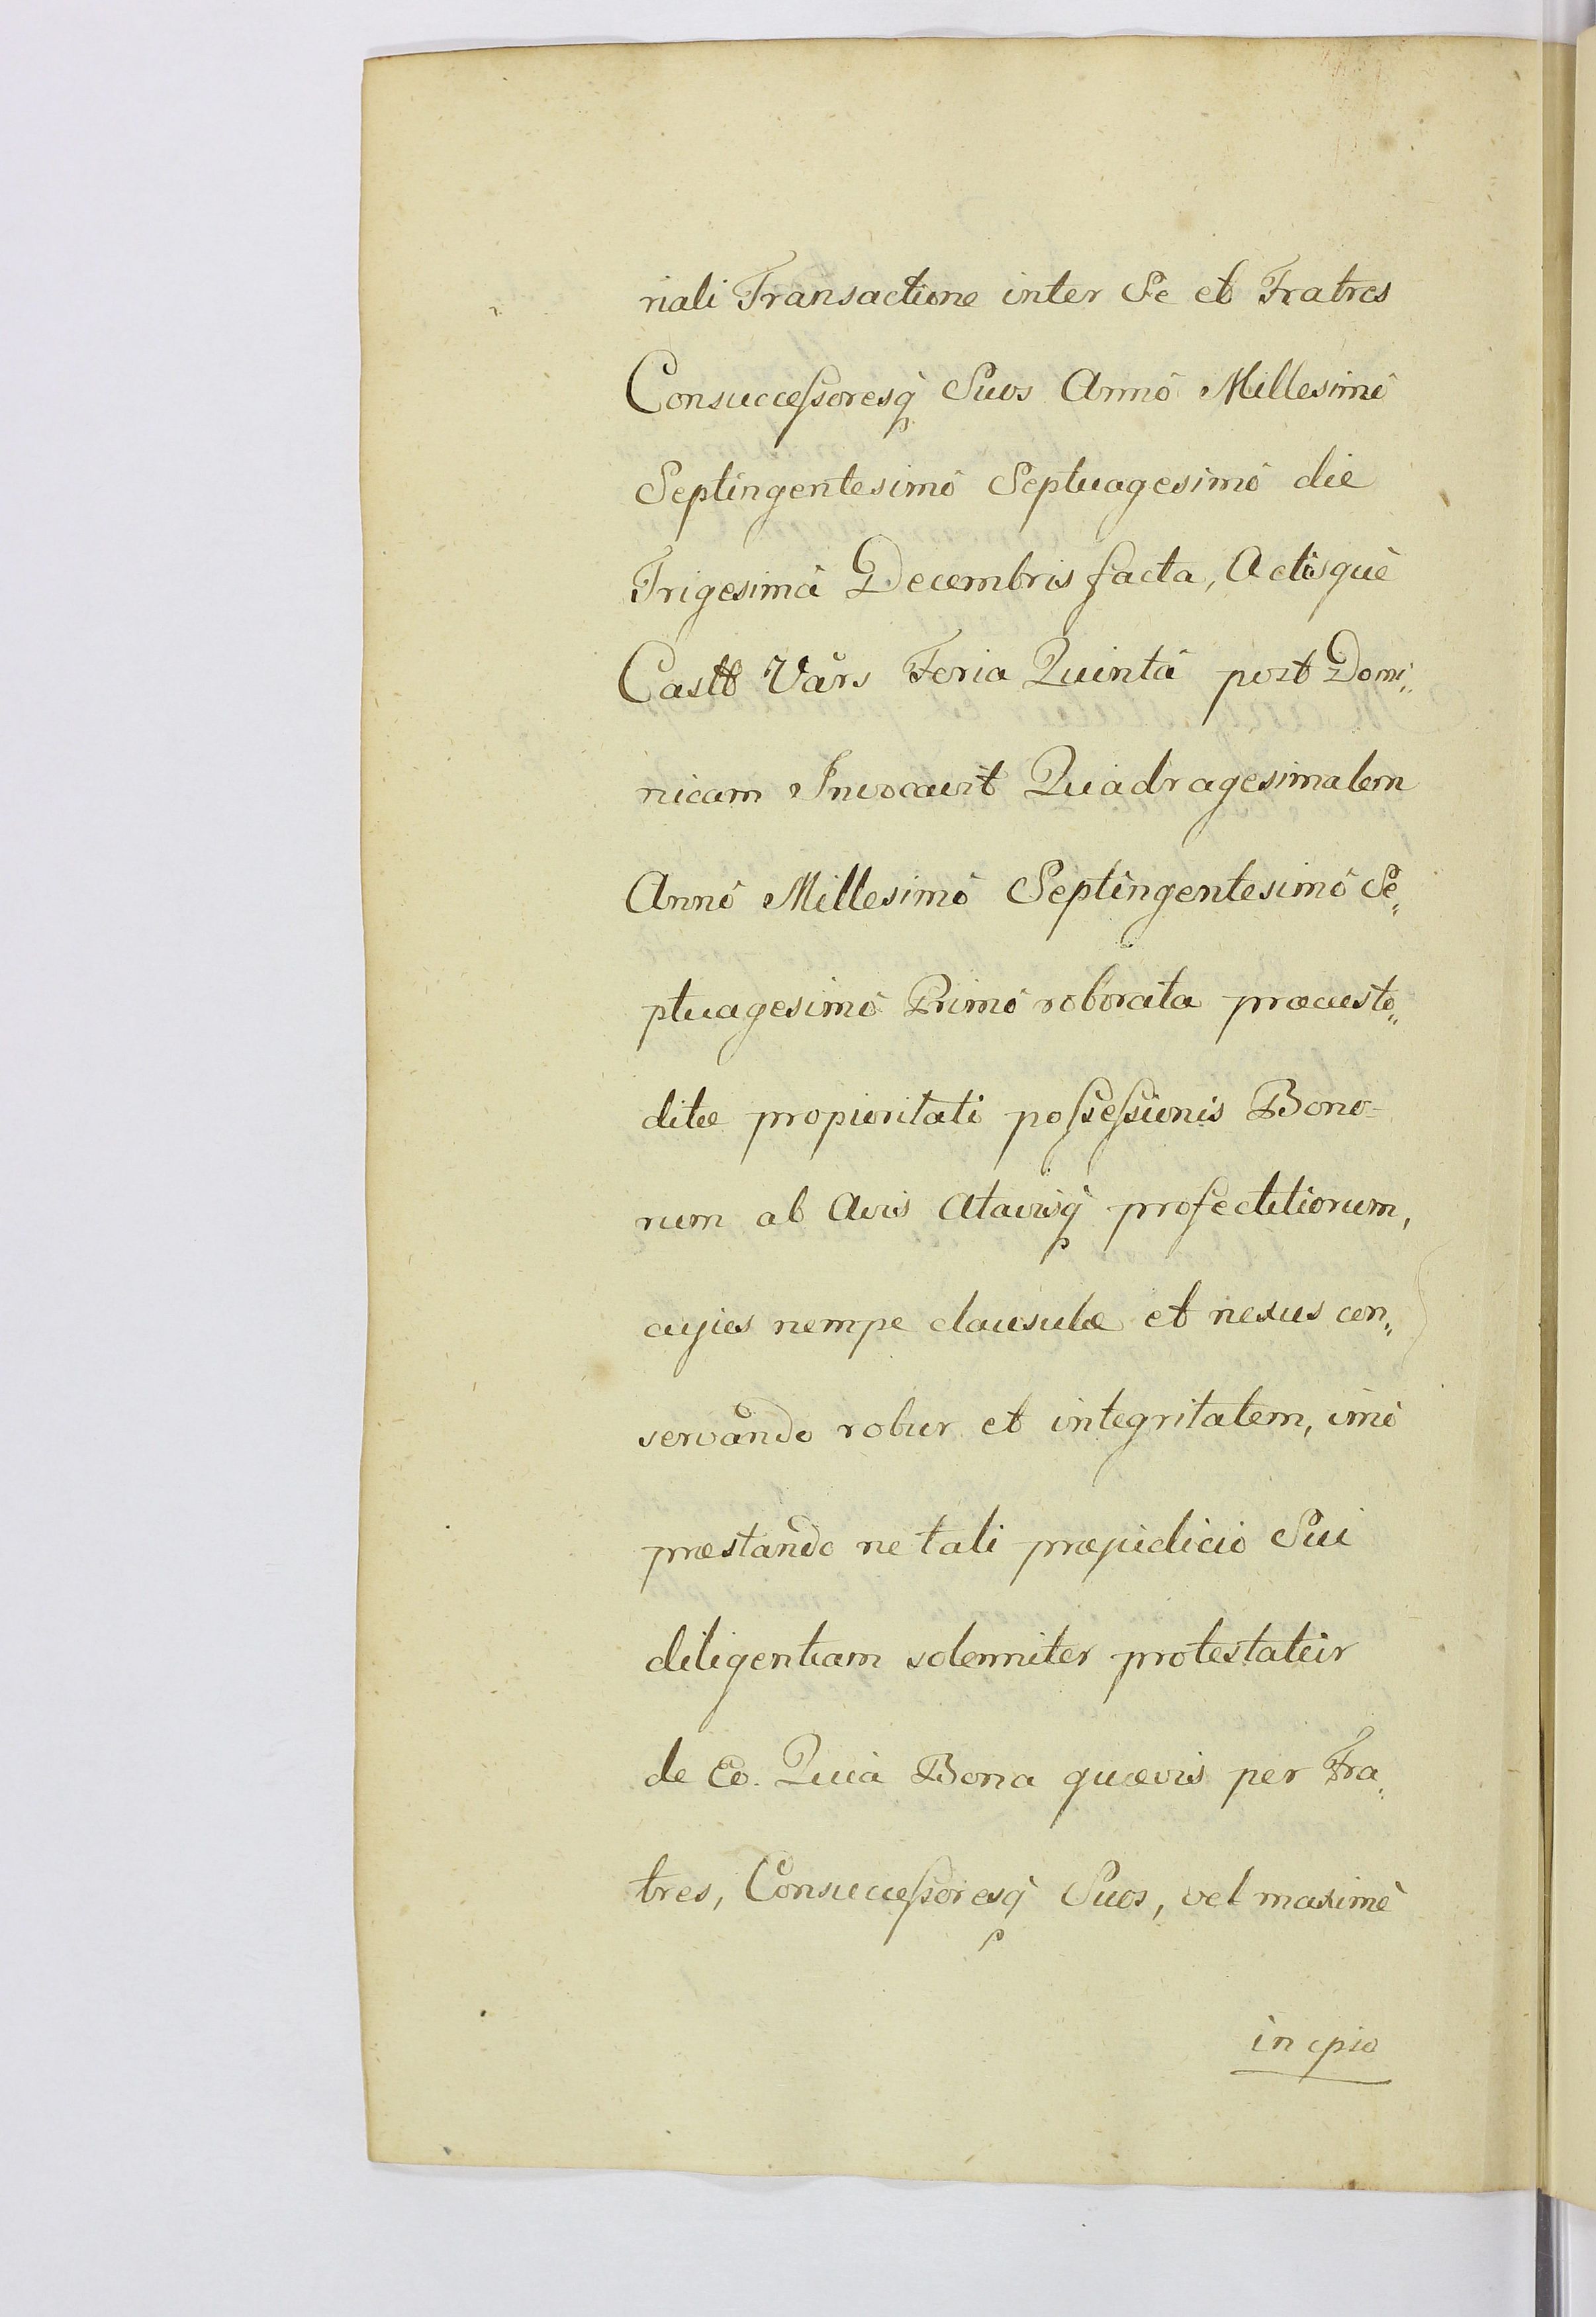 riali Transactione inter Se et Fratres
Consuccessoresq̀ Suos Annô Millesimô
Septingentesimô Septuagesimô die
Trigesimâ Decembris facta, Actisquè
Castr̃ Vars̃ Feria Quintâ post Domi„
nicam Invocavit Quadragesimalem
Annô Millesimô Septingentesimô Se„
ptuagesimô Primô roborata præcusto„
ditæ propioritati possessionis Bono=
rum ab Avis Atavisq̀ profectitiorum,
cujus nempe clausulæ et nexus con„
servando robur et integritatem, imò
præstando ne tali præjudicio Sui
diligentiam solenniter protestatur
de Eo. Quià Bona quævis per Fra„
tres, Consuccessoresq̀ Suos, vel maximè
in cpio